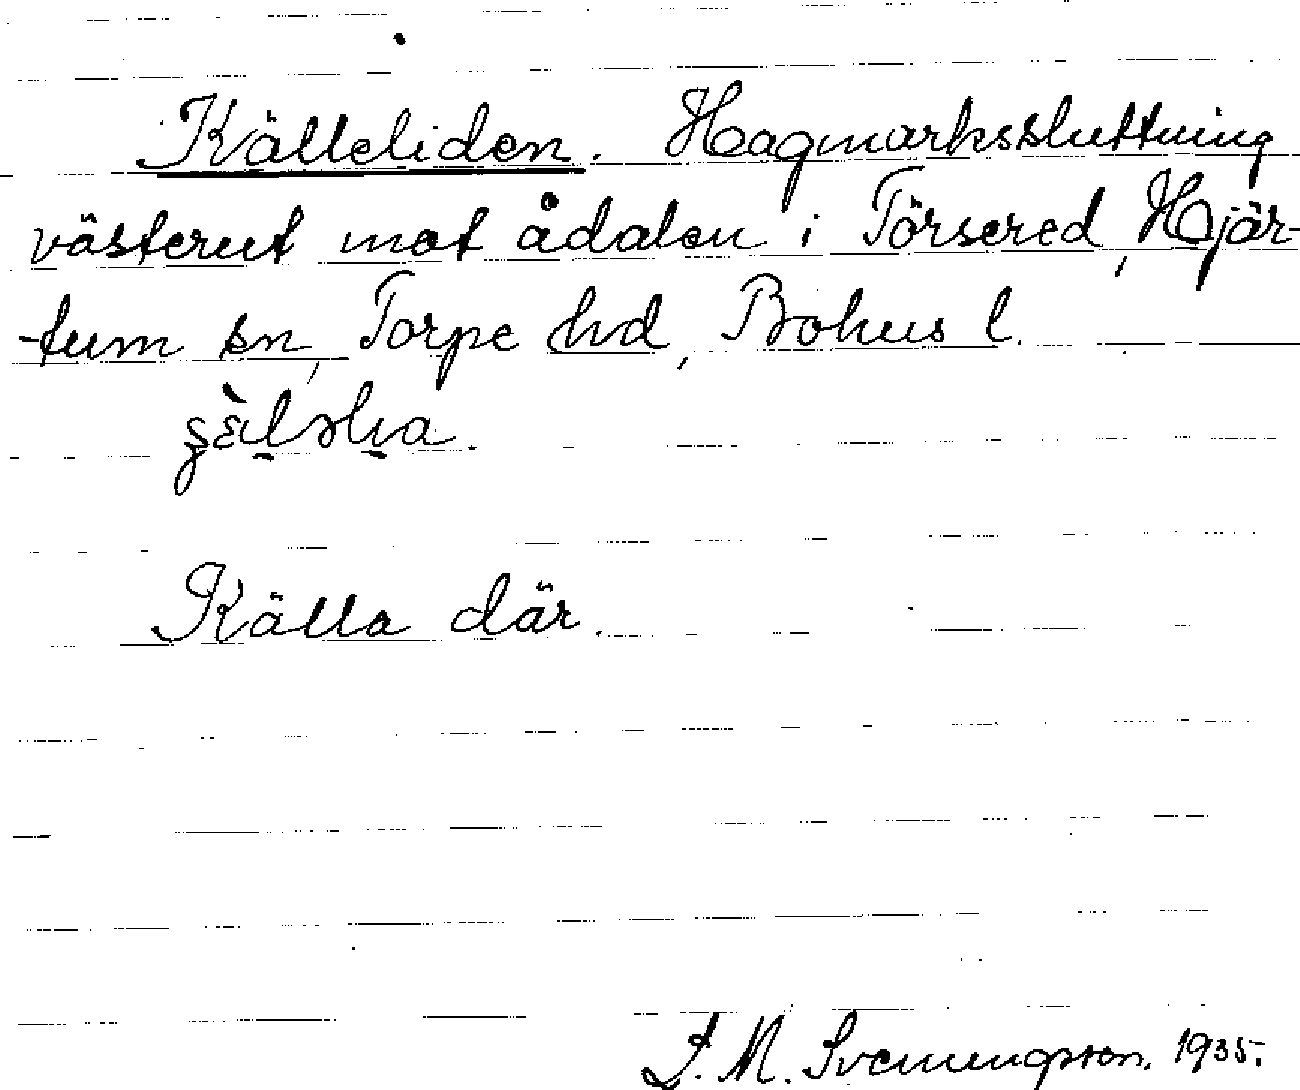 Källeliden. Hagmarkssluttning
västerut mot ådalen i Törsered, Hjär-
-tum sn, Torpe hd, Bohus l.
Källa där.
S. M. Svenungsson. 1935.